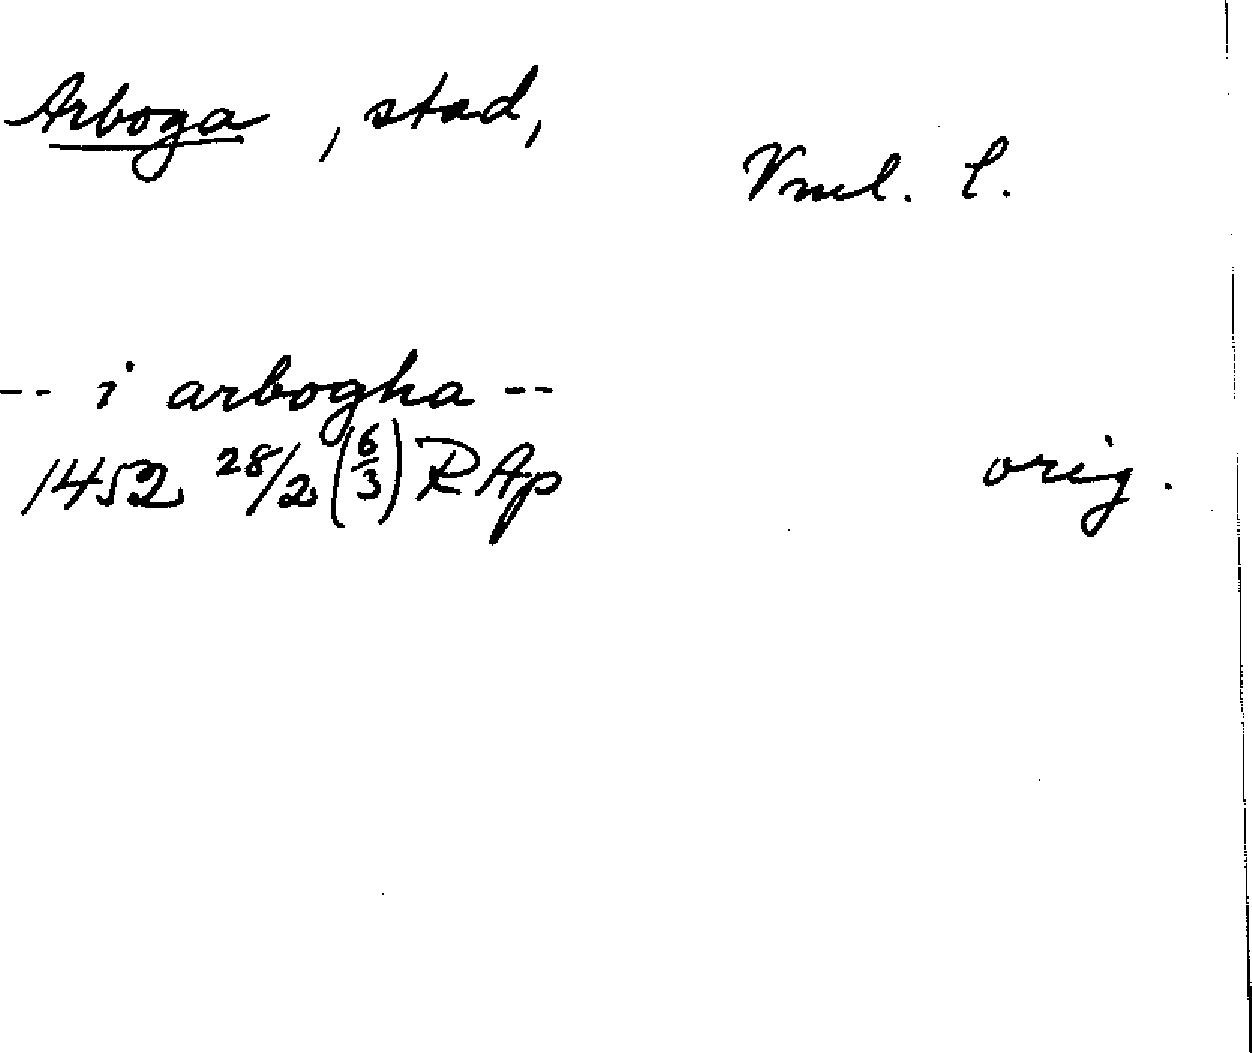 Arboga, stad,
Vml. l.
-- i arbogha --
1452 28/2 (6/3) RAp
orig.